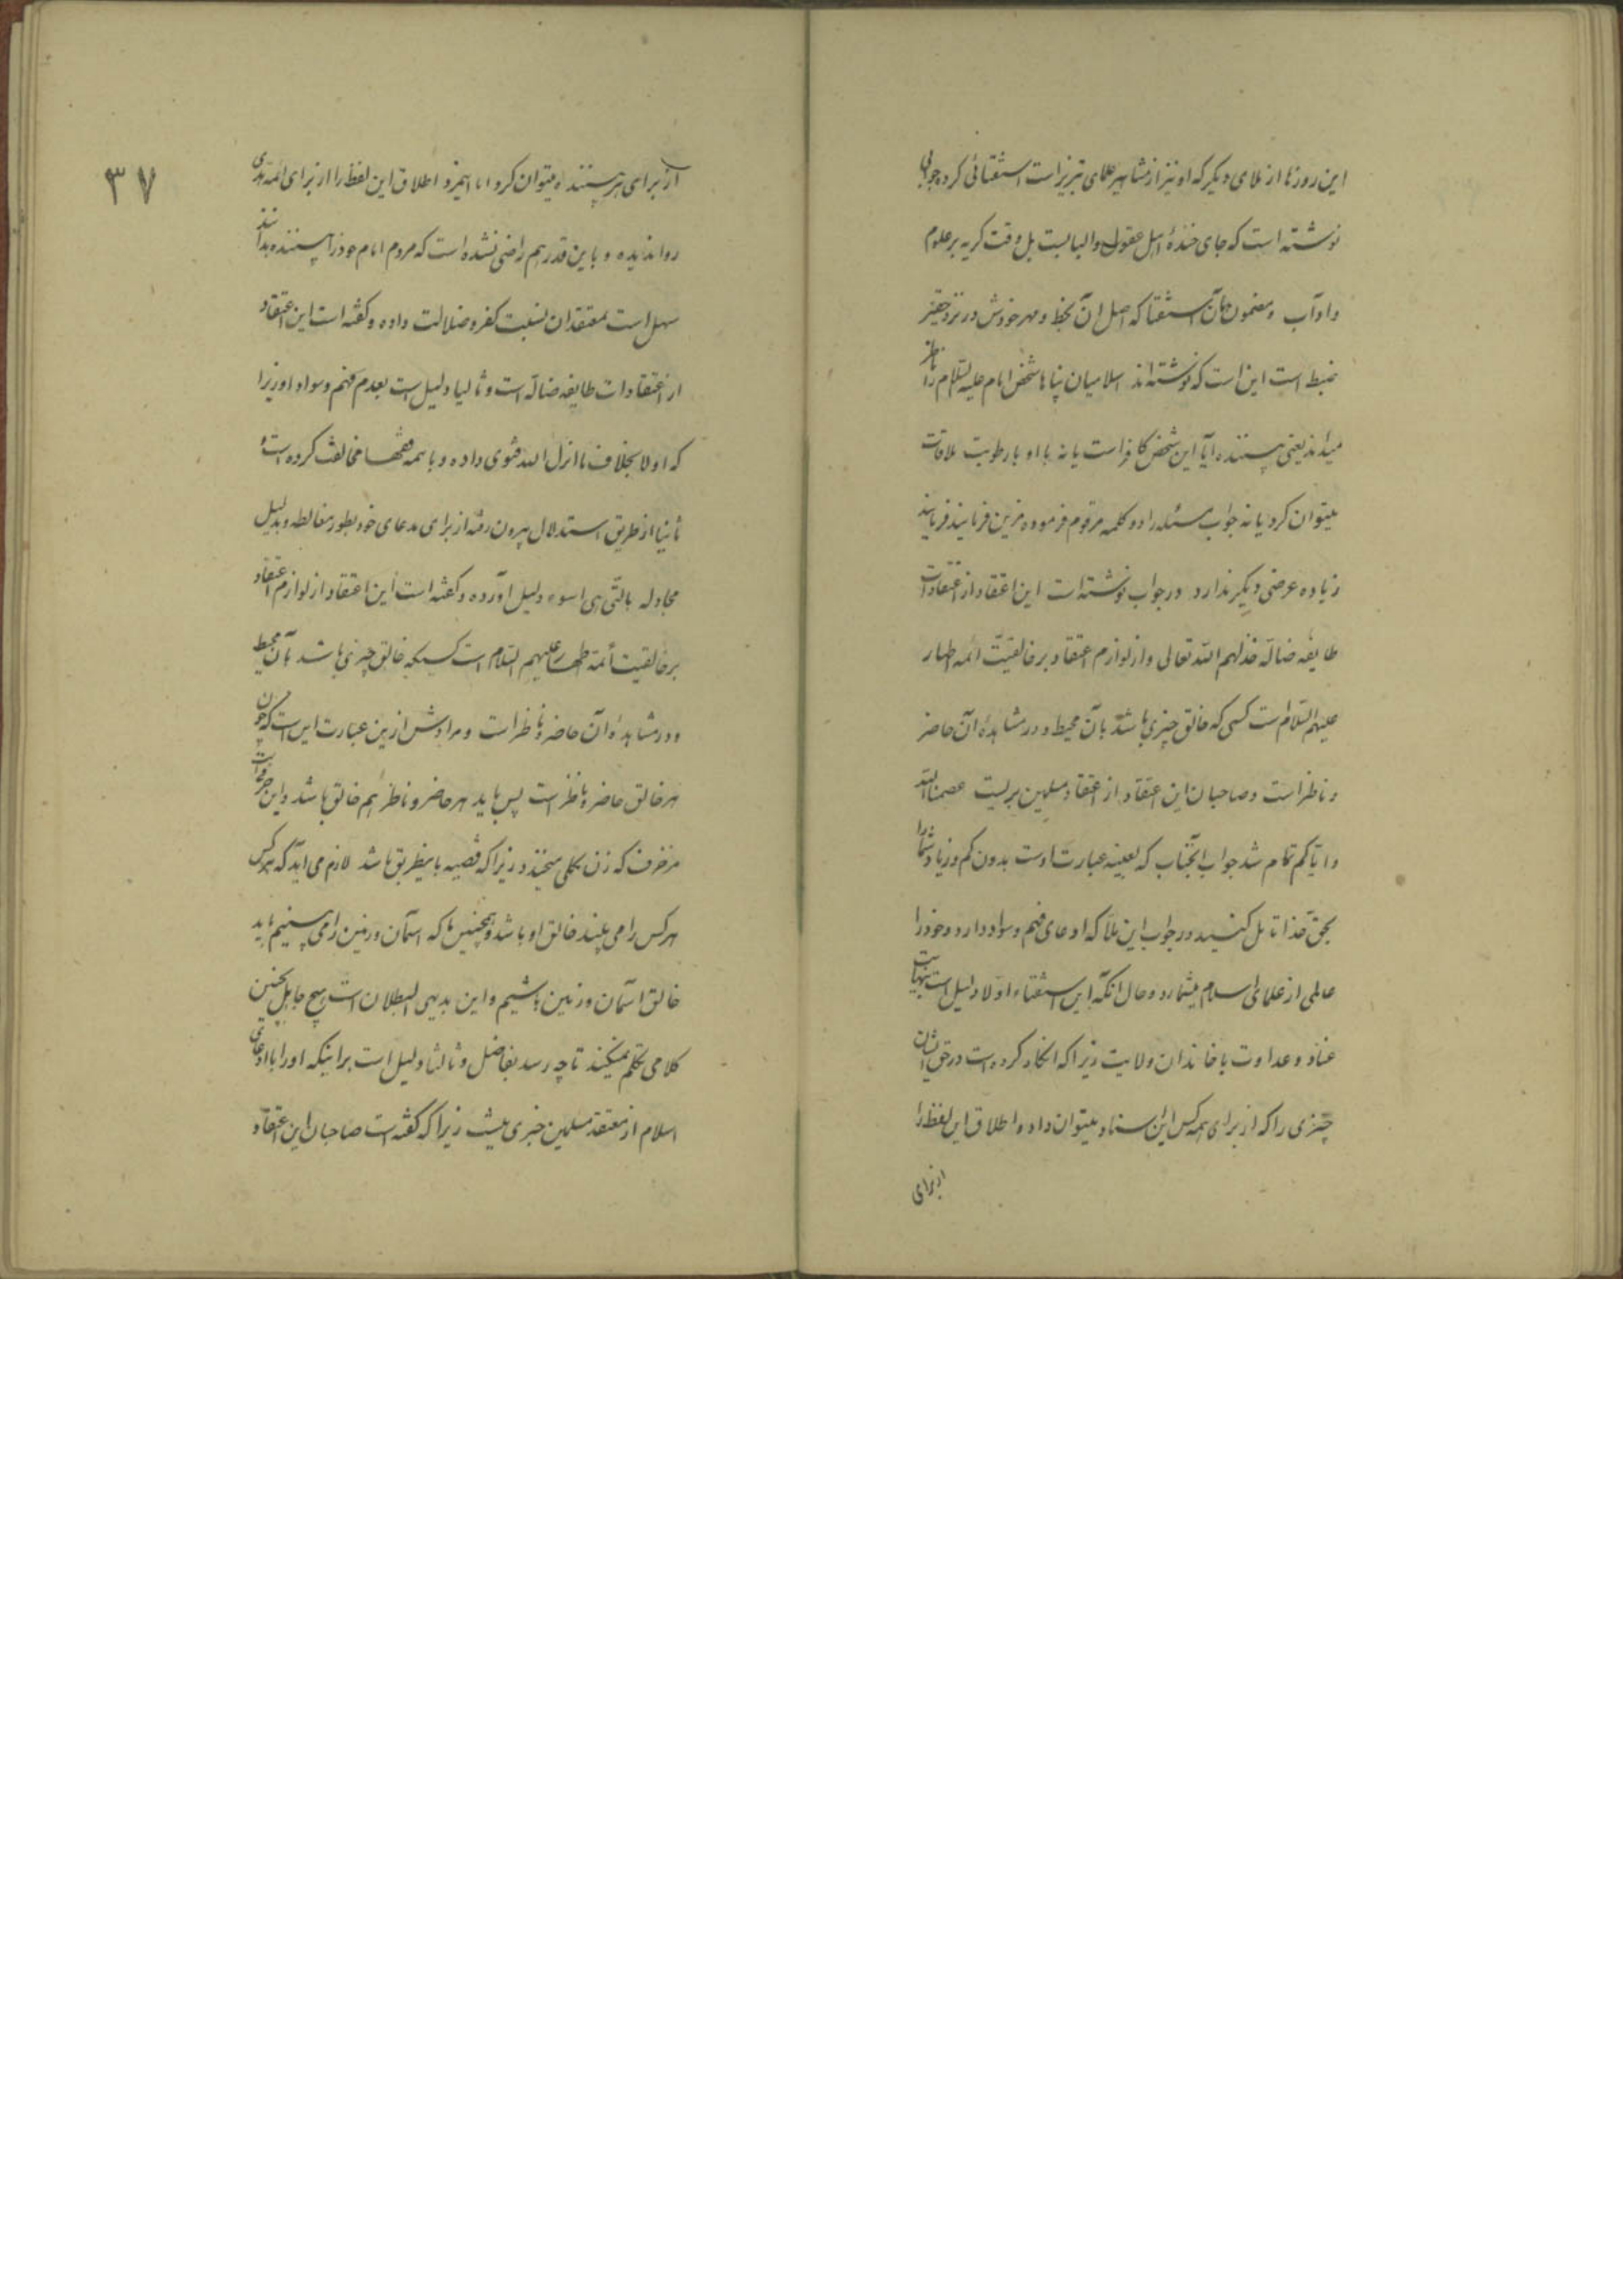 این روزها از ملای دیگر که او نیز از مشاهیر علمای تبریز است استفتائی کرده جوابی
نوشته است که جای خندهٔ اهل عقول و البابست بل وقت گریه بر علوم
و اداب و مضمون آن استفتا که اصل آن بخط و مهر خودش در نزد حقیر
ضبط است این است که نوشته‌اند اسلامیان پناها شخص امام علیه السلام را ناظر
میداند یعنی بیننده آیا این شخص کافر است یا نه با او با رطوبت ملاقات
میتوان کرد یا نه جواب مسئله را دو کلمه مرقوم فرموده مزین فرمایند
زیاده عرضی دیگر ندارد در جواب نوشته است این اعتقاد از اعتقادات
طایفه ضاله خذلهم الله تعالی و از لوازم اعتقاد بر خالقیت ائمه اطهار
علیهم السلام است کسی که خالق چیزی باشد بآن محیط و در مشاهدهٔ آن حاضر
و ناظر است و صاحبان این اعتقاد از اعتقاد مسلمین بریست عصمنا الله
و ایاکم تمام شد جواب آنجناب که بعینه عبارت اوست بدون کم و زیاد شما را
بحق خدا تأمل کنید در جواب این ملا که ادعای فهم و سواد دارد و خود را
عالمی از علمای اسلام میشمارد و حال انکه این استفتاء اولا دلیل است بنهایت
عناد و عداوت با خاندان ولایت زیرا که انکار کرده است در حق ایشان
چیزی را که از برای همه کس این اسناد میتوان داد و اطلاق این لفظ را
از برای
از برای هر بیننده میتوان کرد اما اینمرد اطلاق این لفظ را از برای ائمه هدی
روا ندیده و باین قدر هم راضی نشده است که مردم امام خود را بیننده بدانند
سهل است بمعتقدان نسبت کفر و ضلالت داده و گفته است این اعتقاد
از اعتقادات طایفه ضاله است و ثانیا دلیل است بعدم فهم و سواد او زیرا
که اولا بخلاف ما انزل الله فتوی داده و با همه فقها مخالفت کرده است
ثانیا از طریق استدلال بیرون رفته از برای مدعای خود بطور مغالطه و بدلیل
مجادله بالتی هی اسوء دلیل آورده و گفته است این اعتقاد از لوازم اعتقاد
بر خالقیت ائمة اطهار علیهم السلام است کسیکه خالق چیزی باشد بآن محیط
و در مشاهدهٔ آن حاضر و ناظر است و مرادش ازین عبارت این است که چون
هر خالق حاضر و ناظر است پس باید هر حاضر و ناظر هم خالق باشد و این حرفی است
مزخرف که زن بکلی میخندد زیرا که قضیه باینطریق باشد لازم می‌اید که هر کس
هر کس را می‌بیند خالق او باشد و همچنین ما که اسمان و زمین را می‌بینیم باید
خالق آسمان و زمین باشیم و این بدیهی البطلان است هیچ جاهل چنین
کلامی تکلم نمیکند تا چه رسد بفاضل و ثالثا دلیل است بر اینکه او را با ادعای
اسلام از معتقد مسلمین خبری نیست زیرا که گفته است صاحبان این اعتقاد
۳۷